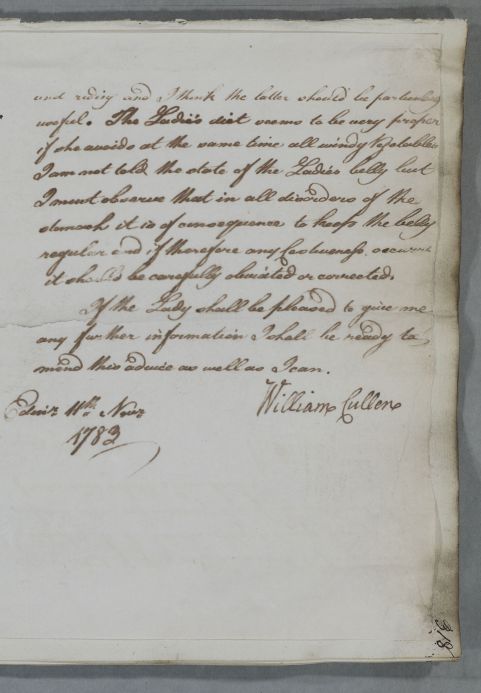 and riding and I think the latter should be particularly
useful. The Ladie's diet seems to be very proper
if she avoids at the same time all windy Vegetables
I am not told the state of the Ladies belly but
I must observe that in all disorders of the
stomach it is of consequence to keep the belly
regular and if therefore any Costiveness occurrs
it should be carefully obviated or corrected.
If the Lady shall be pleased to give me
any further information I shall be ready to
mend this advice as well as I can.
William Cullen
Edinr. 11th. Novr
1783